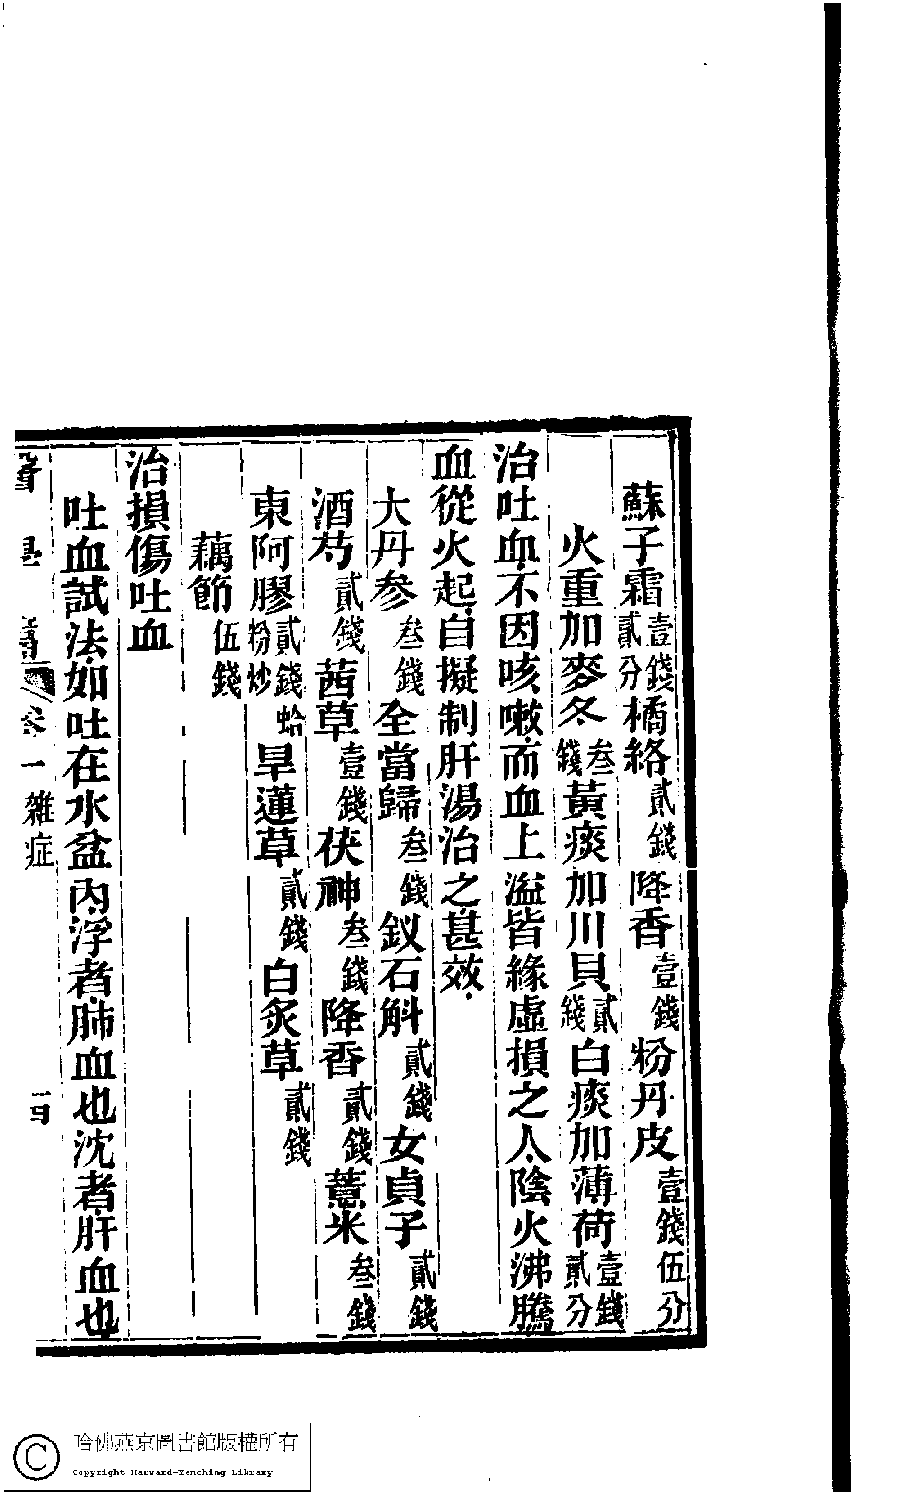 蘇子霜壹錢貳分橘絡貳錢降香壹錢粉丹皮壹錢伍分
火重加麥冬叁錢黃痰加川貝貳錢白痰加薄荷壹錢貳分
治吐血不因咳嗽而血上溢皆緣虛損之人陰火沸騰
血從火起自擬制肝湯治之甚效
大丹参叁錢全當歸叁錢釵石斛貳錢女貞子貳錢
酒芍貳錢茜草壹錢茯神叁錢降香貳錢薏米叁錢
東阿膠貳錢蛤粉炒旱蓮草貳錢白炙草貳錢
藕節伍錢
治損傷吐血
吐血試法如吐在水盆內浮者肺血也沈者肝血也
卷一 雜症
哈佛燕京圖書館版權所有
Copyright Harvard-Yenching Library